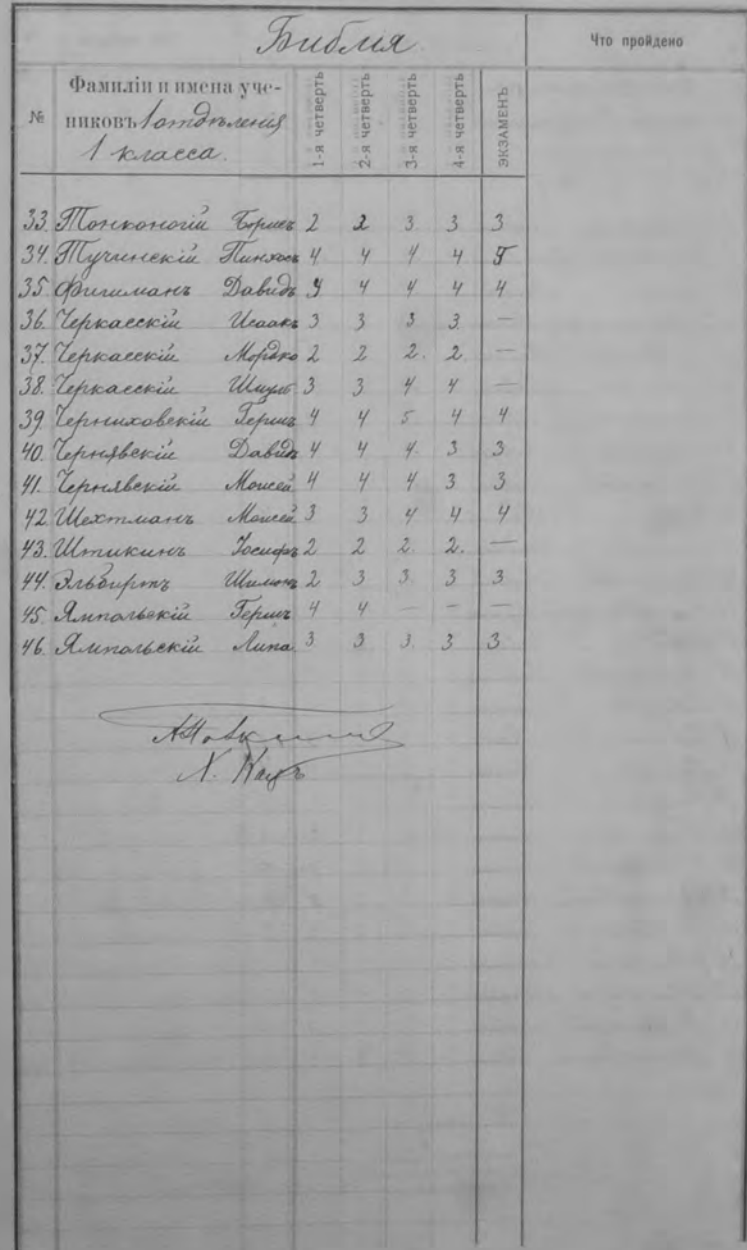 Библия
Что пройдено
№ Фамиліи и имена уче-
никовъ 1 отдѣленія
1 класса.
1-я четверть 2-я четверть 3-я четверть 4-я четверть ЭКЗАМЕНЪ
33. Тонконогій 2 2 3 3 3
34. Тучинскій Пинхосъ 4 4 4 4
35. Фишманъ Давидъ 4 4 4 4
36. Черкасскій Исаакъ 3 3 3 3. —
37. Черкасскій Мордко 2 2 2. 2. —
38. Черкасскій 3 3 4 4 —
39. Черниховскій Гершъ 4 4 5 4 4
40. Чернявскій Давидъ 4 4 4. 3 3
41. Чернявскій Моисей 4 4 4 3 3
42. Шехтманъ Моисей 3 3 4 4 4
43. Штикинъ Іосифъ 2 2 2. 2. —
44. Эльбиртъ Шимонъ 2 3 3. 3 3
45. Ямпольскій Гершъ 4 4 — — —
46. Ямпольскій Липа 3 3 3. 3 3